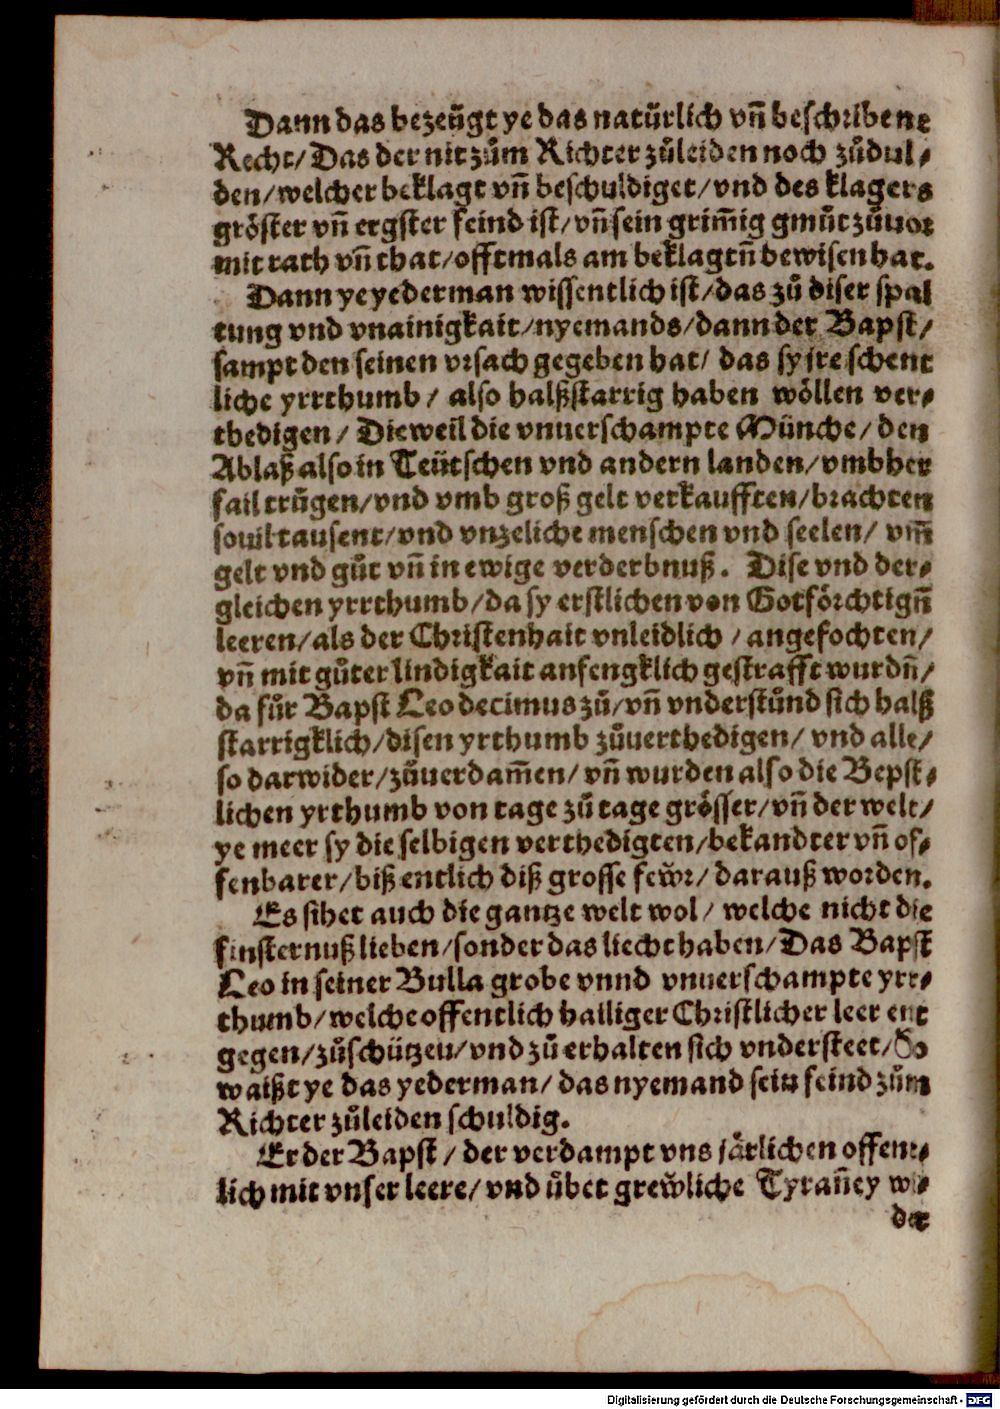 Dann das bezeügt ye das natürlich vñ beschribene
Recht/ Das der nit zům Richter zůleiden noch zůdul⸗
den/ welcher beklagt vñ beschuldiget/ vnd des klagers
gröster vñ ergster feind ist/ vñ sein grim̃ig gmůt zůuor
mit rath vñ that/ offtmals am beklagtñ bewisen hat.
Dann ye yederman wissentlich ist/ das zů diser spal
tung vnd vnainigkait/ nyemands/ dann der Bapst/
sampt den seinen vrsach gegeben hat/ das sy jre schent
liche yrrthumb/ also halßstarrig haben wöllen ver⸗
thedigen/ Dieweil die vnuerschampte Münche/ den
Ablaß also in Teütschen vnd andern landen/ vmbher
fail trůgen/ vnd vmb groß gelt verkaufften/ brachten
souil tausent/ vnd vnzeliche menschen vnd seelen/ vm̃
gelt vnd gůt vñ in ewige verderbnuß. Dise vnd der⸗
gleichen yrrthumb/ da sy erstlichen von Gotförchtigñ
leeren/ als der Christenhait vnleidlich/ angefochten/
vñ mit gůter lindigkait anfengklich gestrafft wurdñ/
da fůr Bapst Leo decimus zů/ vñ vnderstůnd sich halß
starrigklich/ disen yrthumb zůuerthedigen/ vnd alle/
so darwider/ zůuerdam̃en/ vñ wurden also die Bepst⸗
lichen yrthumb von tage zů tage grösser/ vñ der welt/
ye meer sy die selbigen verthedigten/ bekandter vñ of⸗
fenbarer/ biß entlich diß grosse fewr/ darauß worden.
Es sihet auch die gantze welt wol/ welche nicht die
finsternuß lieben/ sonder das liecht haben/ Das Bapst
Leo in seiner Bulla grobe vnnd vnuerschampte yrr⸗
thumb/ welche offentlich hailiger Christlicher leer ent
gegen/ zůschützen/ vnd zů erhalten sich vndersteet/ So
waißt ye das yederman/ das nyemand sein feind zům
Richter zůleiden schuldig.
Er der Bapst/ der verdampt vns järlichen offent⸗
lich mit vnser leere/ vnd übet grewliche Tyrañey wi⸗
der
Digitalisierung gefördert durch die Deutsche Forschungsgemeinschaft - DFG